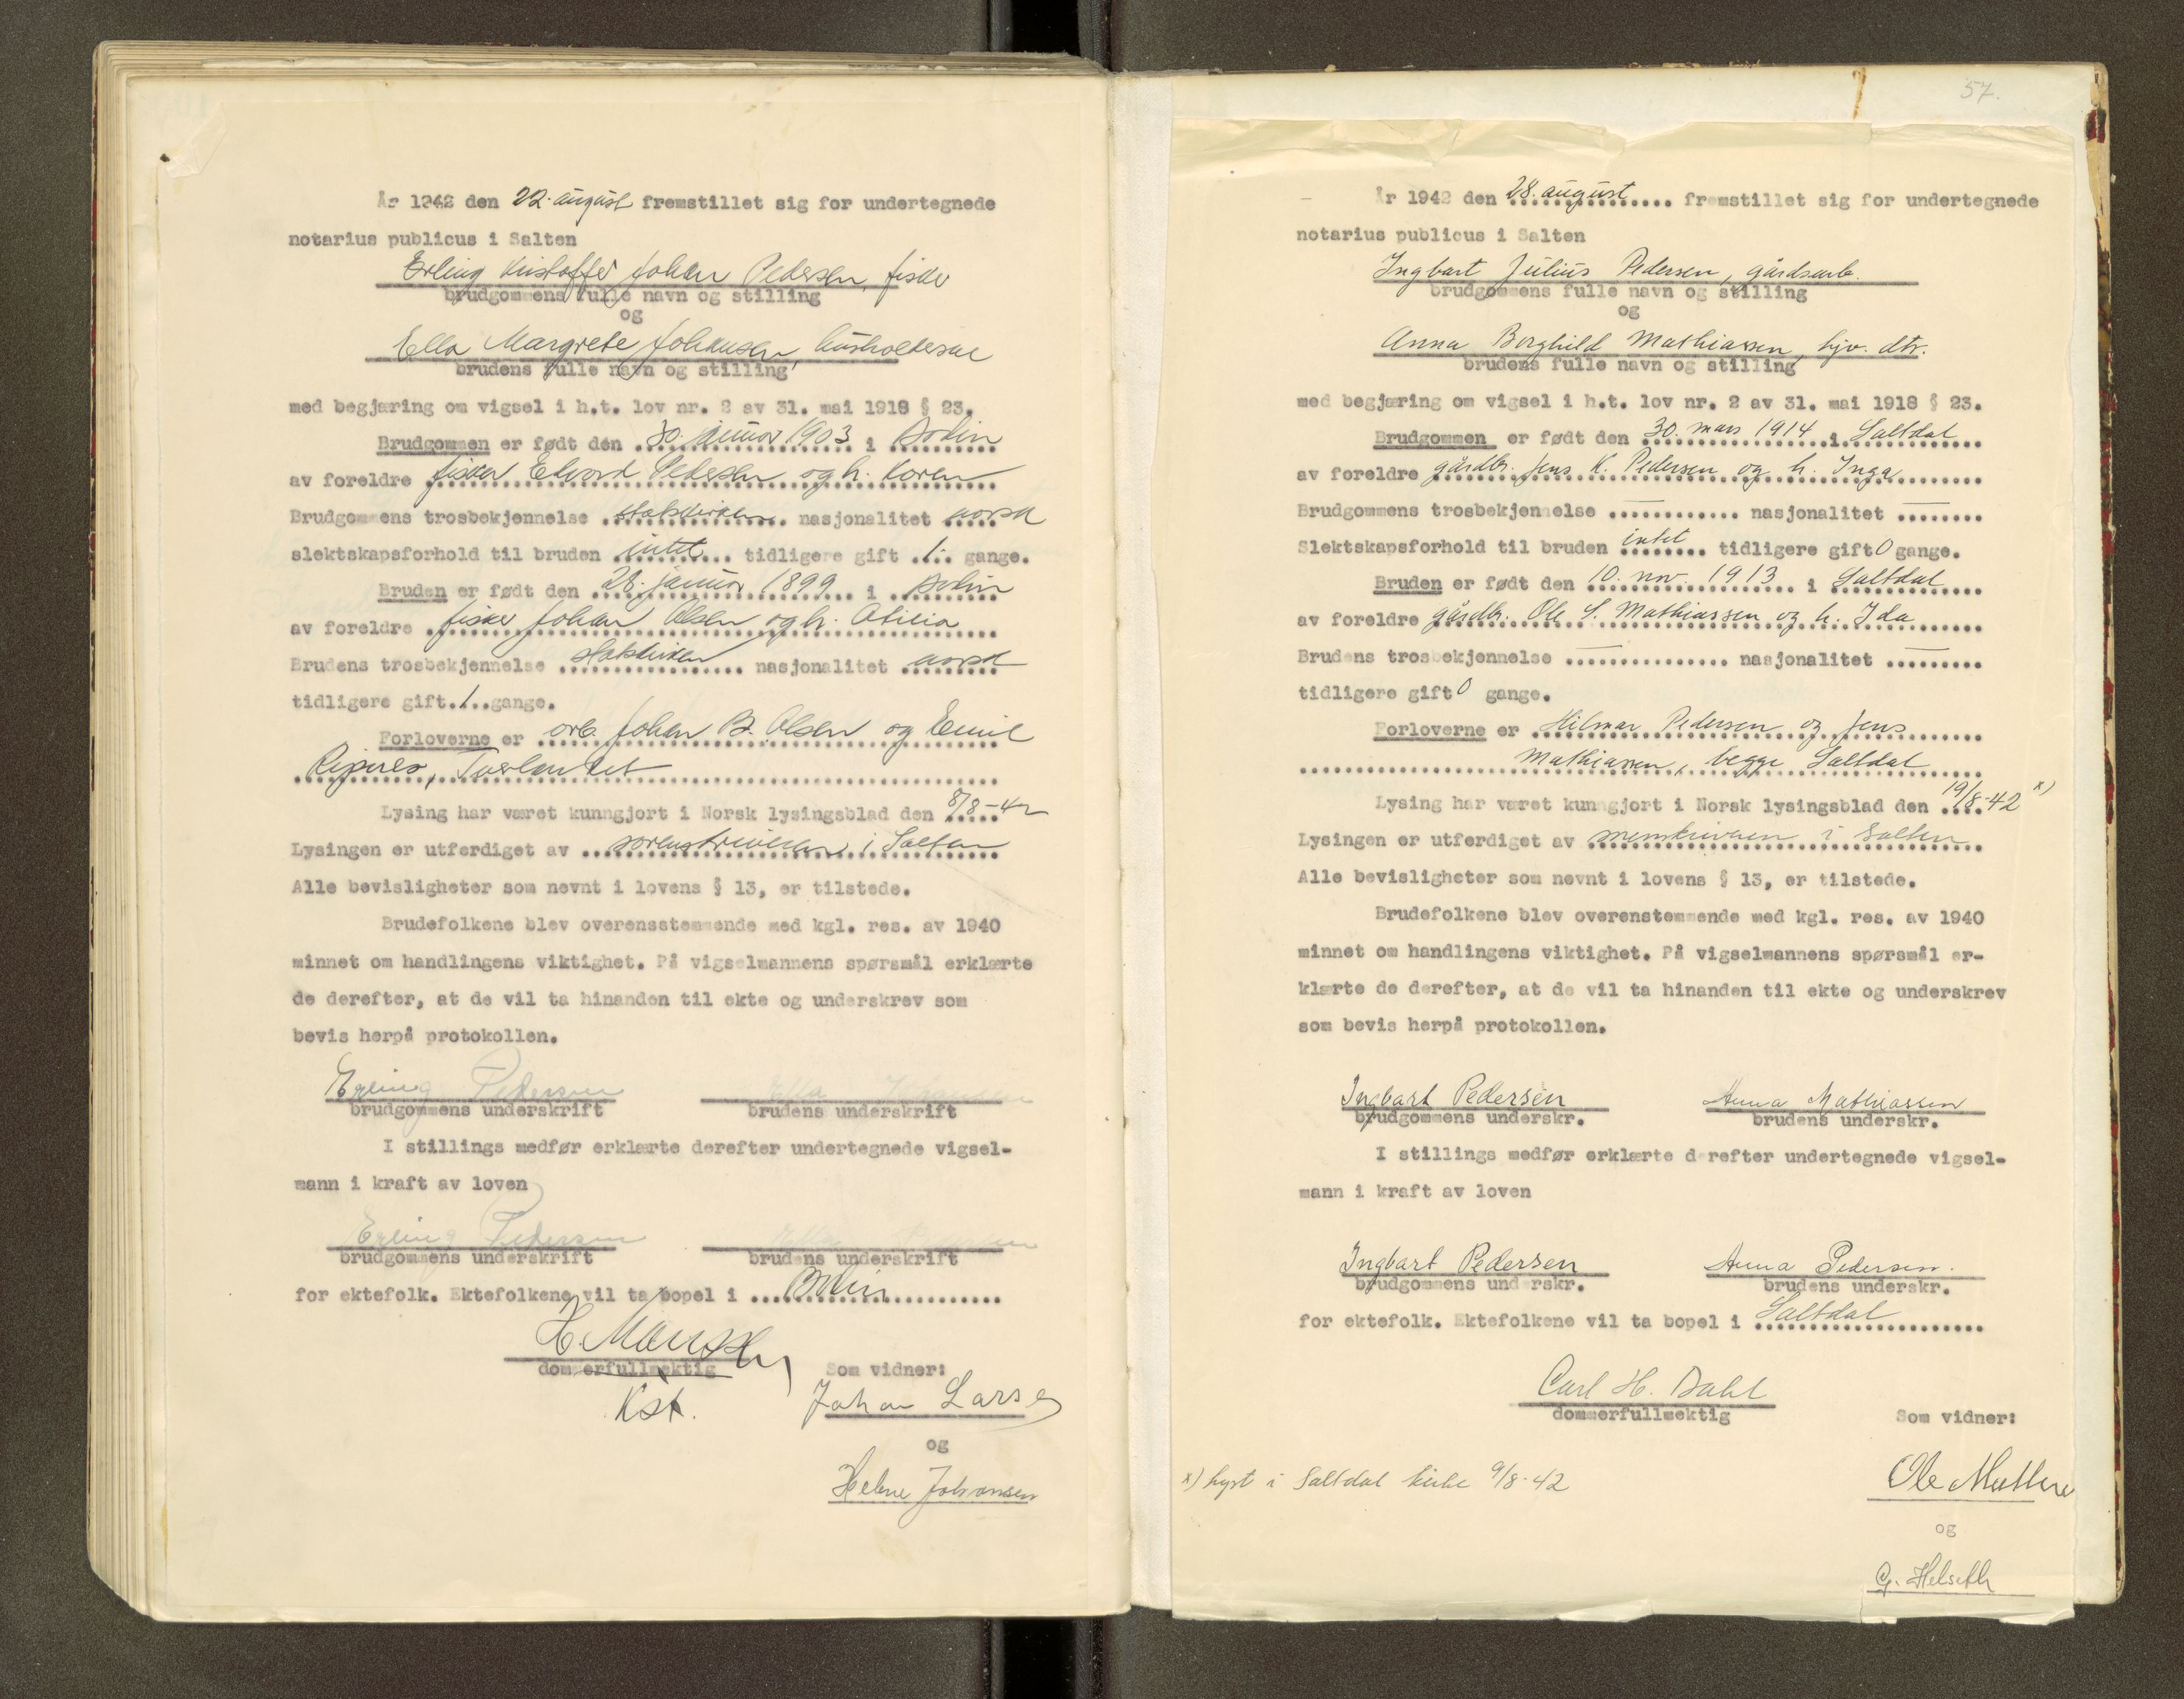 År 1942 den 22. august fremstillet sig for undertegnede
notarius publicus i Salten
Erling Kristoffer Johan Pedersen, fisker
brudgommens fulle navn og stilling
og
Ella Margrete Johansen, husholderske
brudens fulle navn og stilling
med begjæring om vigsel i h.t. lov nr. 2 av 31. mai 1918 § 23.
Brudgommen er født den 30. januar 1903 i Bodin
av foreldre fisker Edvard Pedersen og h. Karen
Brudgommens trosbekjennelse statskirken nasjonalitet norsk
slektskapsforhold til bruden intet tidligere gift 1 gange.
Bruden er født den 28. januar 1899 i Bodin
av foreldre fisker Johan Olsen og h. Otilia
Brudens trosbekjennelse statskirken nasjonalitet norsk
tidligere gift 1 gange.
Forloverne er arb. Johan B. Olsen og Emil
Lysing har været kunngjort i Norsk lysingsblad den 8/8-42
Lysingen er utferdiget av sorenskriveren i Salten
Alle bevisligheter som nevnt i lovens § 13, er tilstede.
Brudefolkene blev overensstemmende med kgl. res. av 1940
minnet om handlingens viktighet. På vigselmannens spørsmål erklærte
de derefter, at de vil ta hinanden til ekte og underskrev som
bevis herpå protokollen.
Erling Pedersen Ella Johansen
brudgommens underskrift brudens underskrift
I stillings medfør erklærte derefter undertegnede vigsel-
mann i kraft av loven
Erling Pedersen Ella Pedersen
brudgommens underskrift brudens underskrift
for ektefolk. Ektefolkene vil ta bopel i Bodin
dommerfullmektig Som vidner:
Kst. Johan Larsen
og
Helene Johansen
57.
År 1942 den 28. august fremstillet sig for undertegnede
notarius publicus i Salten
Ingbart Julius Pedersen, gårdsarb.
brudgommens fulle navn og stilling
og
Anna Borghild Mathiassen, hjv. dtr.
brudens fulle navn og stilling
med begjæring om vigsel i h.t. lov nr. 2 av 31. mai 1918 § 23.
Brudgommen er født den 30. mars 1914 i Saltdal
av foreldre gårdbr. Jens K. Pedersen og h. Inga
Brudgommens trosbekjennelse — nasjonalitet —
Slektskapsforhold til bruden intet tidligere gift 0 gange.
Bruden er født den 10. nov. 1913 i Saltdal
av foreldre gårdbr. Ole S. Mathiassen og h. Ida
Brudens trosbekjennelse — nasjonalitet —
tidligere gift 0 gange.
Forloverne er Hilmar Pedersen og Jens
Mathiassen, begge Saltdal
Lysing har været kunngjort i Norsk lysingsblad den 19/8-42 x)
Lysingen er utferdiget av sorenskriveren i Salten
Alle bevisligheter som nevnt i lovens § 13, er tilstede.
Brudefolkene blev overenstemmende med kgl. res. av 1940
minnet om handlingens viktighet. På vigselmannens spørsmål er-
klærte de derefter, at de vil ta hinanden til ekte og underskrev
som bevis herpå protokollen.
Ingbart Pedersen Anna Mathiassen
brudgommens underskr. brudens underskr.
I stillings medfør erklærte derefter undertegnede vigsel-
mann i kraft av loven
Ingbart Pedersen Anna Pedersen.
brudgommens underskr. brudens underskr.
for ektefolk. Ektefolkene vil ta bopel i Saltdal
Carl H. Dahl
dommerfullmektig Som vidner:
x) lyst i Saltdal kirke 9/8-42
Ole
og
G. Helseth